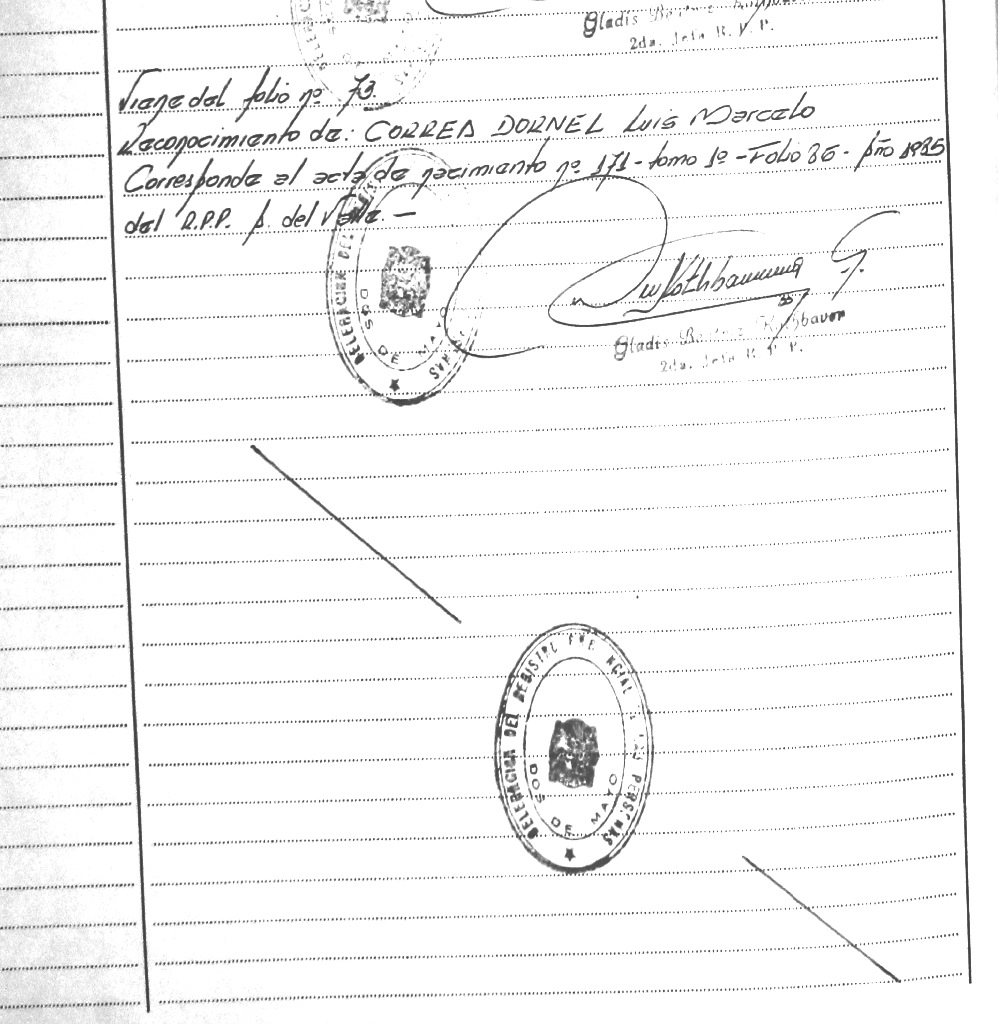 Gladis
2da. Jefa R. P. P.
Viene del folio nº 73.
Reconocimiento de: CORREA DORNEL Luis Marcelo
Corresponde al acta de nacimiento nº 171 - tomo 1º - Folio 36 - Año 1985
del R.P.P. A. del Valle. —
DELEGACION DEL
DOS DE MAYO
Gladis
2da. Jefa R. P. P.
DELEGACION DEL REGISTRO PROVINCIAL DE LAS PERSONAS
DOS DE MAYO